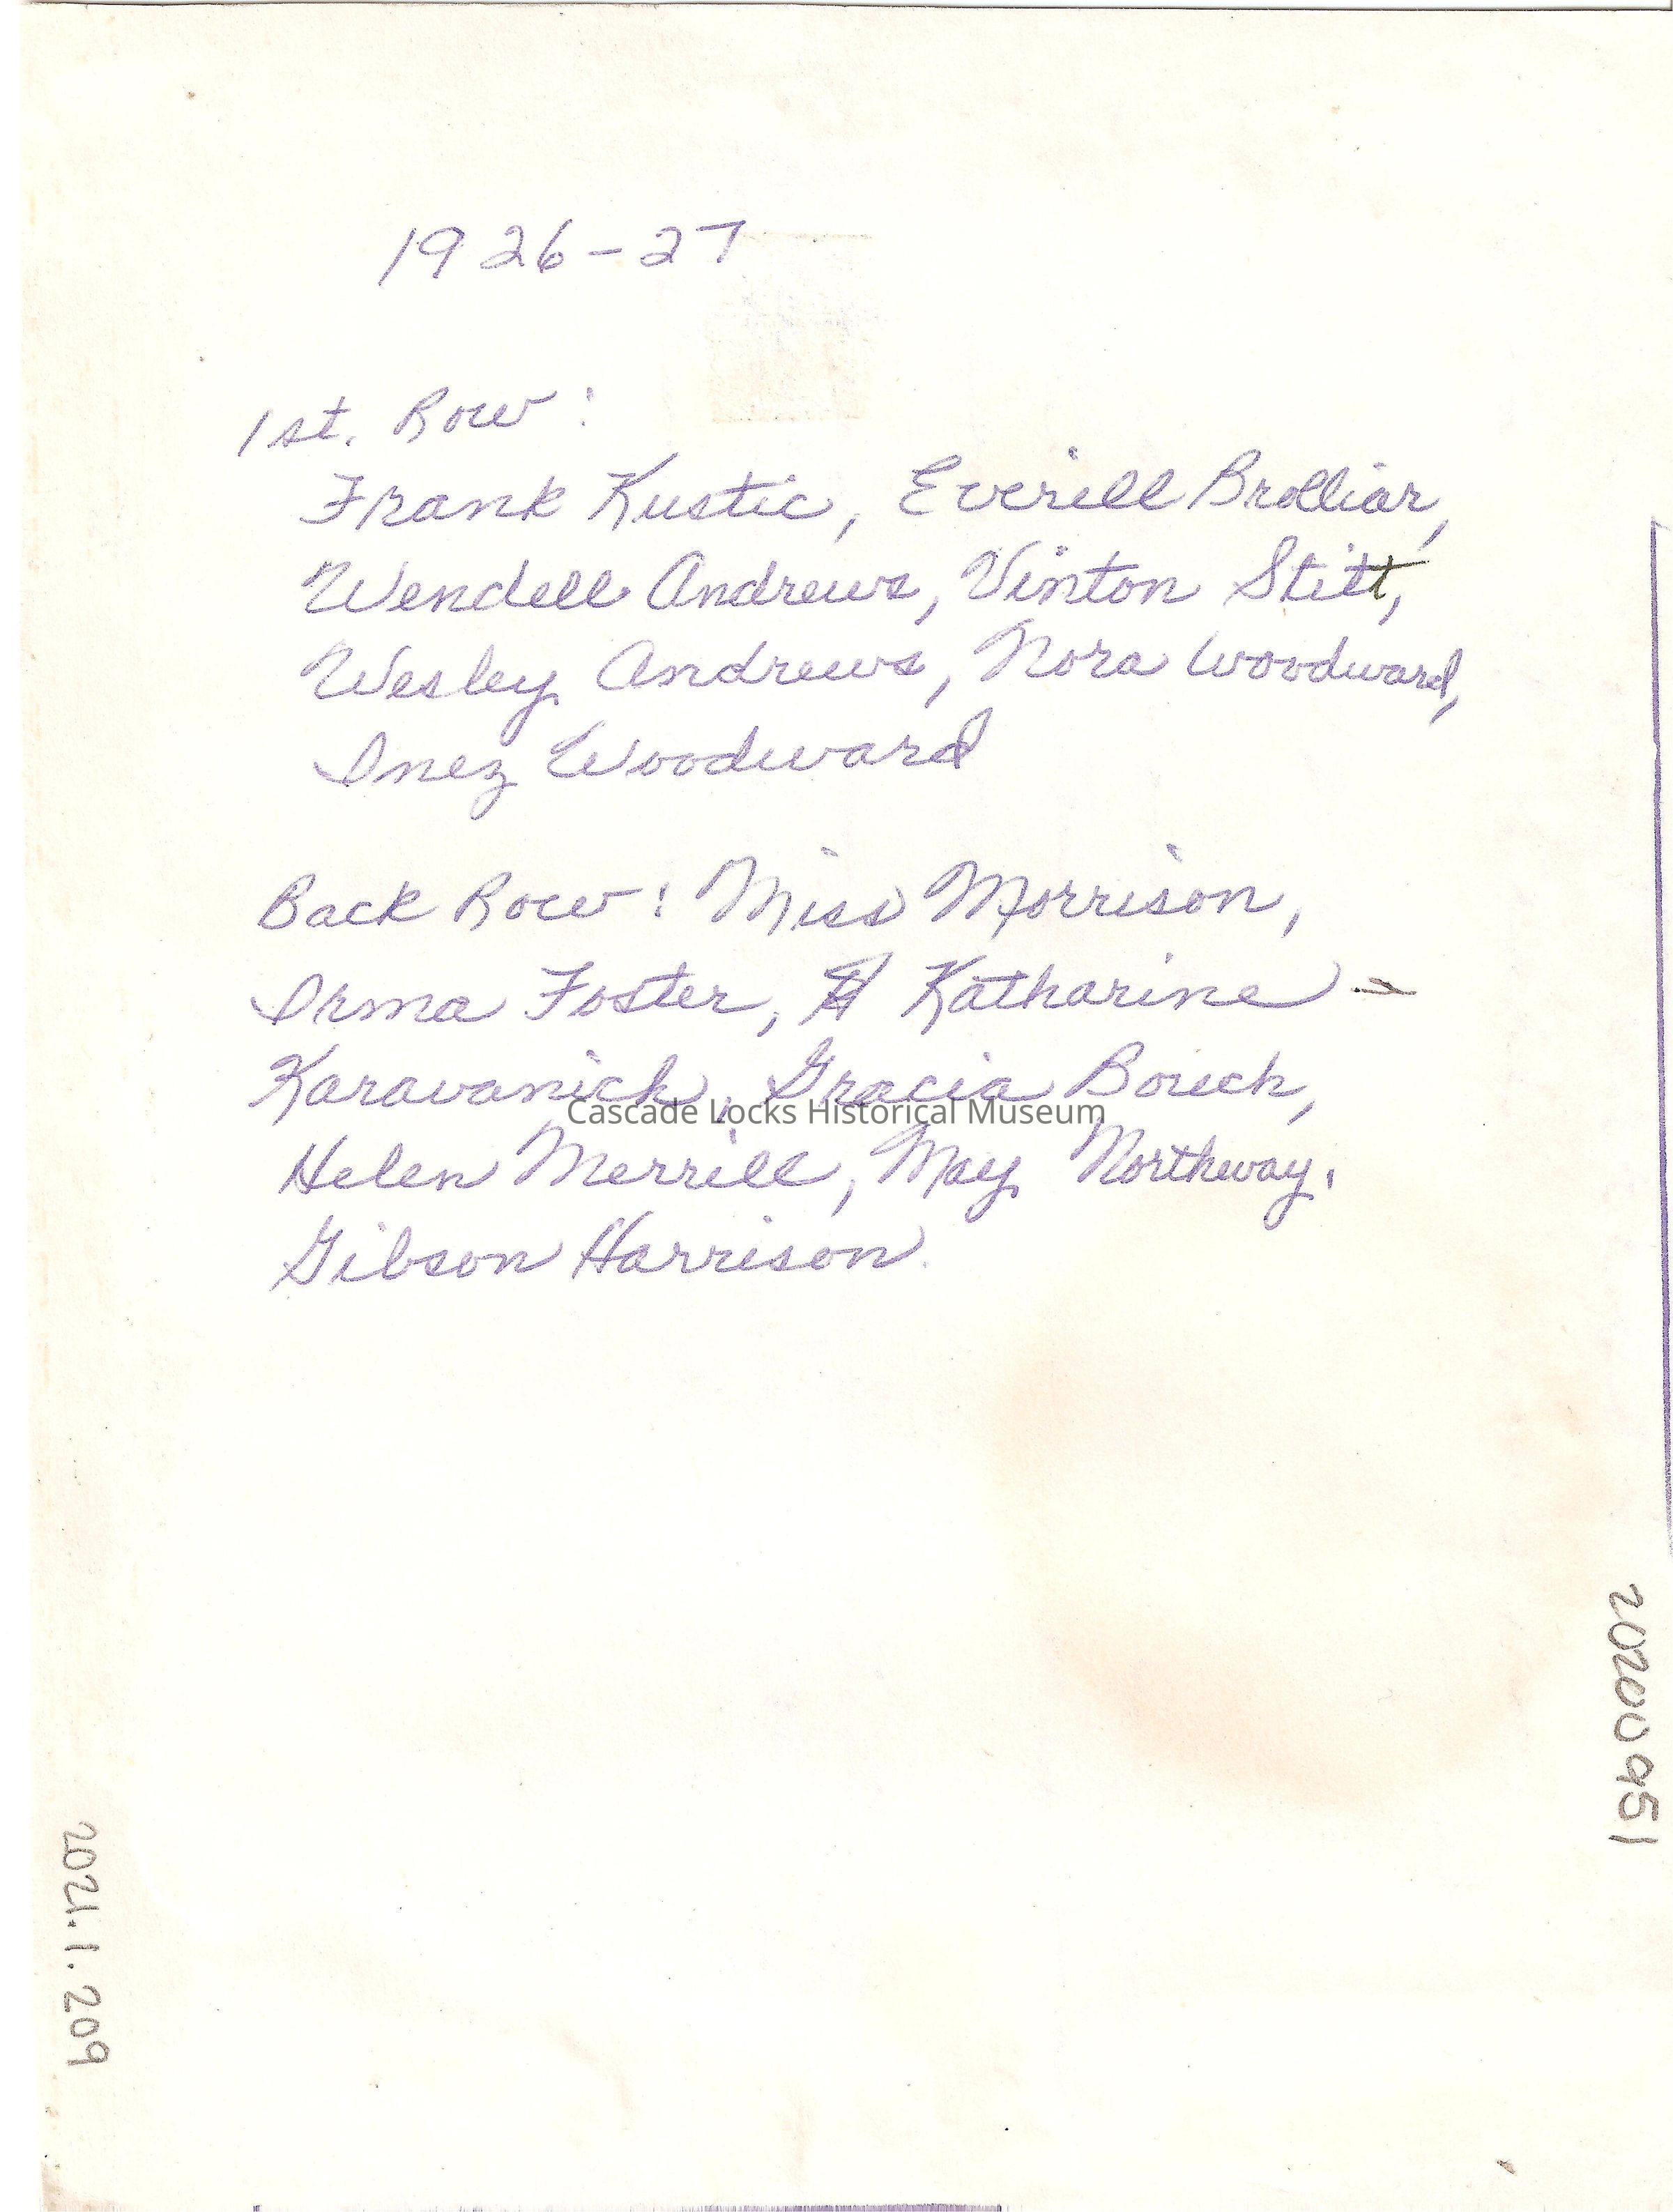 1926-27
1st. Row:
Frank Kustic, Everill Brolliar,
Wendell Andrews, Vinton Stitt,
Wesley Andrews, Nora Woodward,
Inez Woodward
Back Row: Miss Morrison,
Irma Foster, Katharine -
Karavanich, Gracia
Cascade Locks Historical Museum
Helen Merrill, May Northway.
Gibson Harrison.
2020095 1
2021.1.209